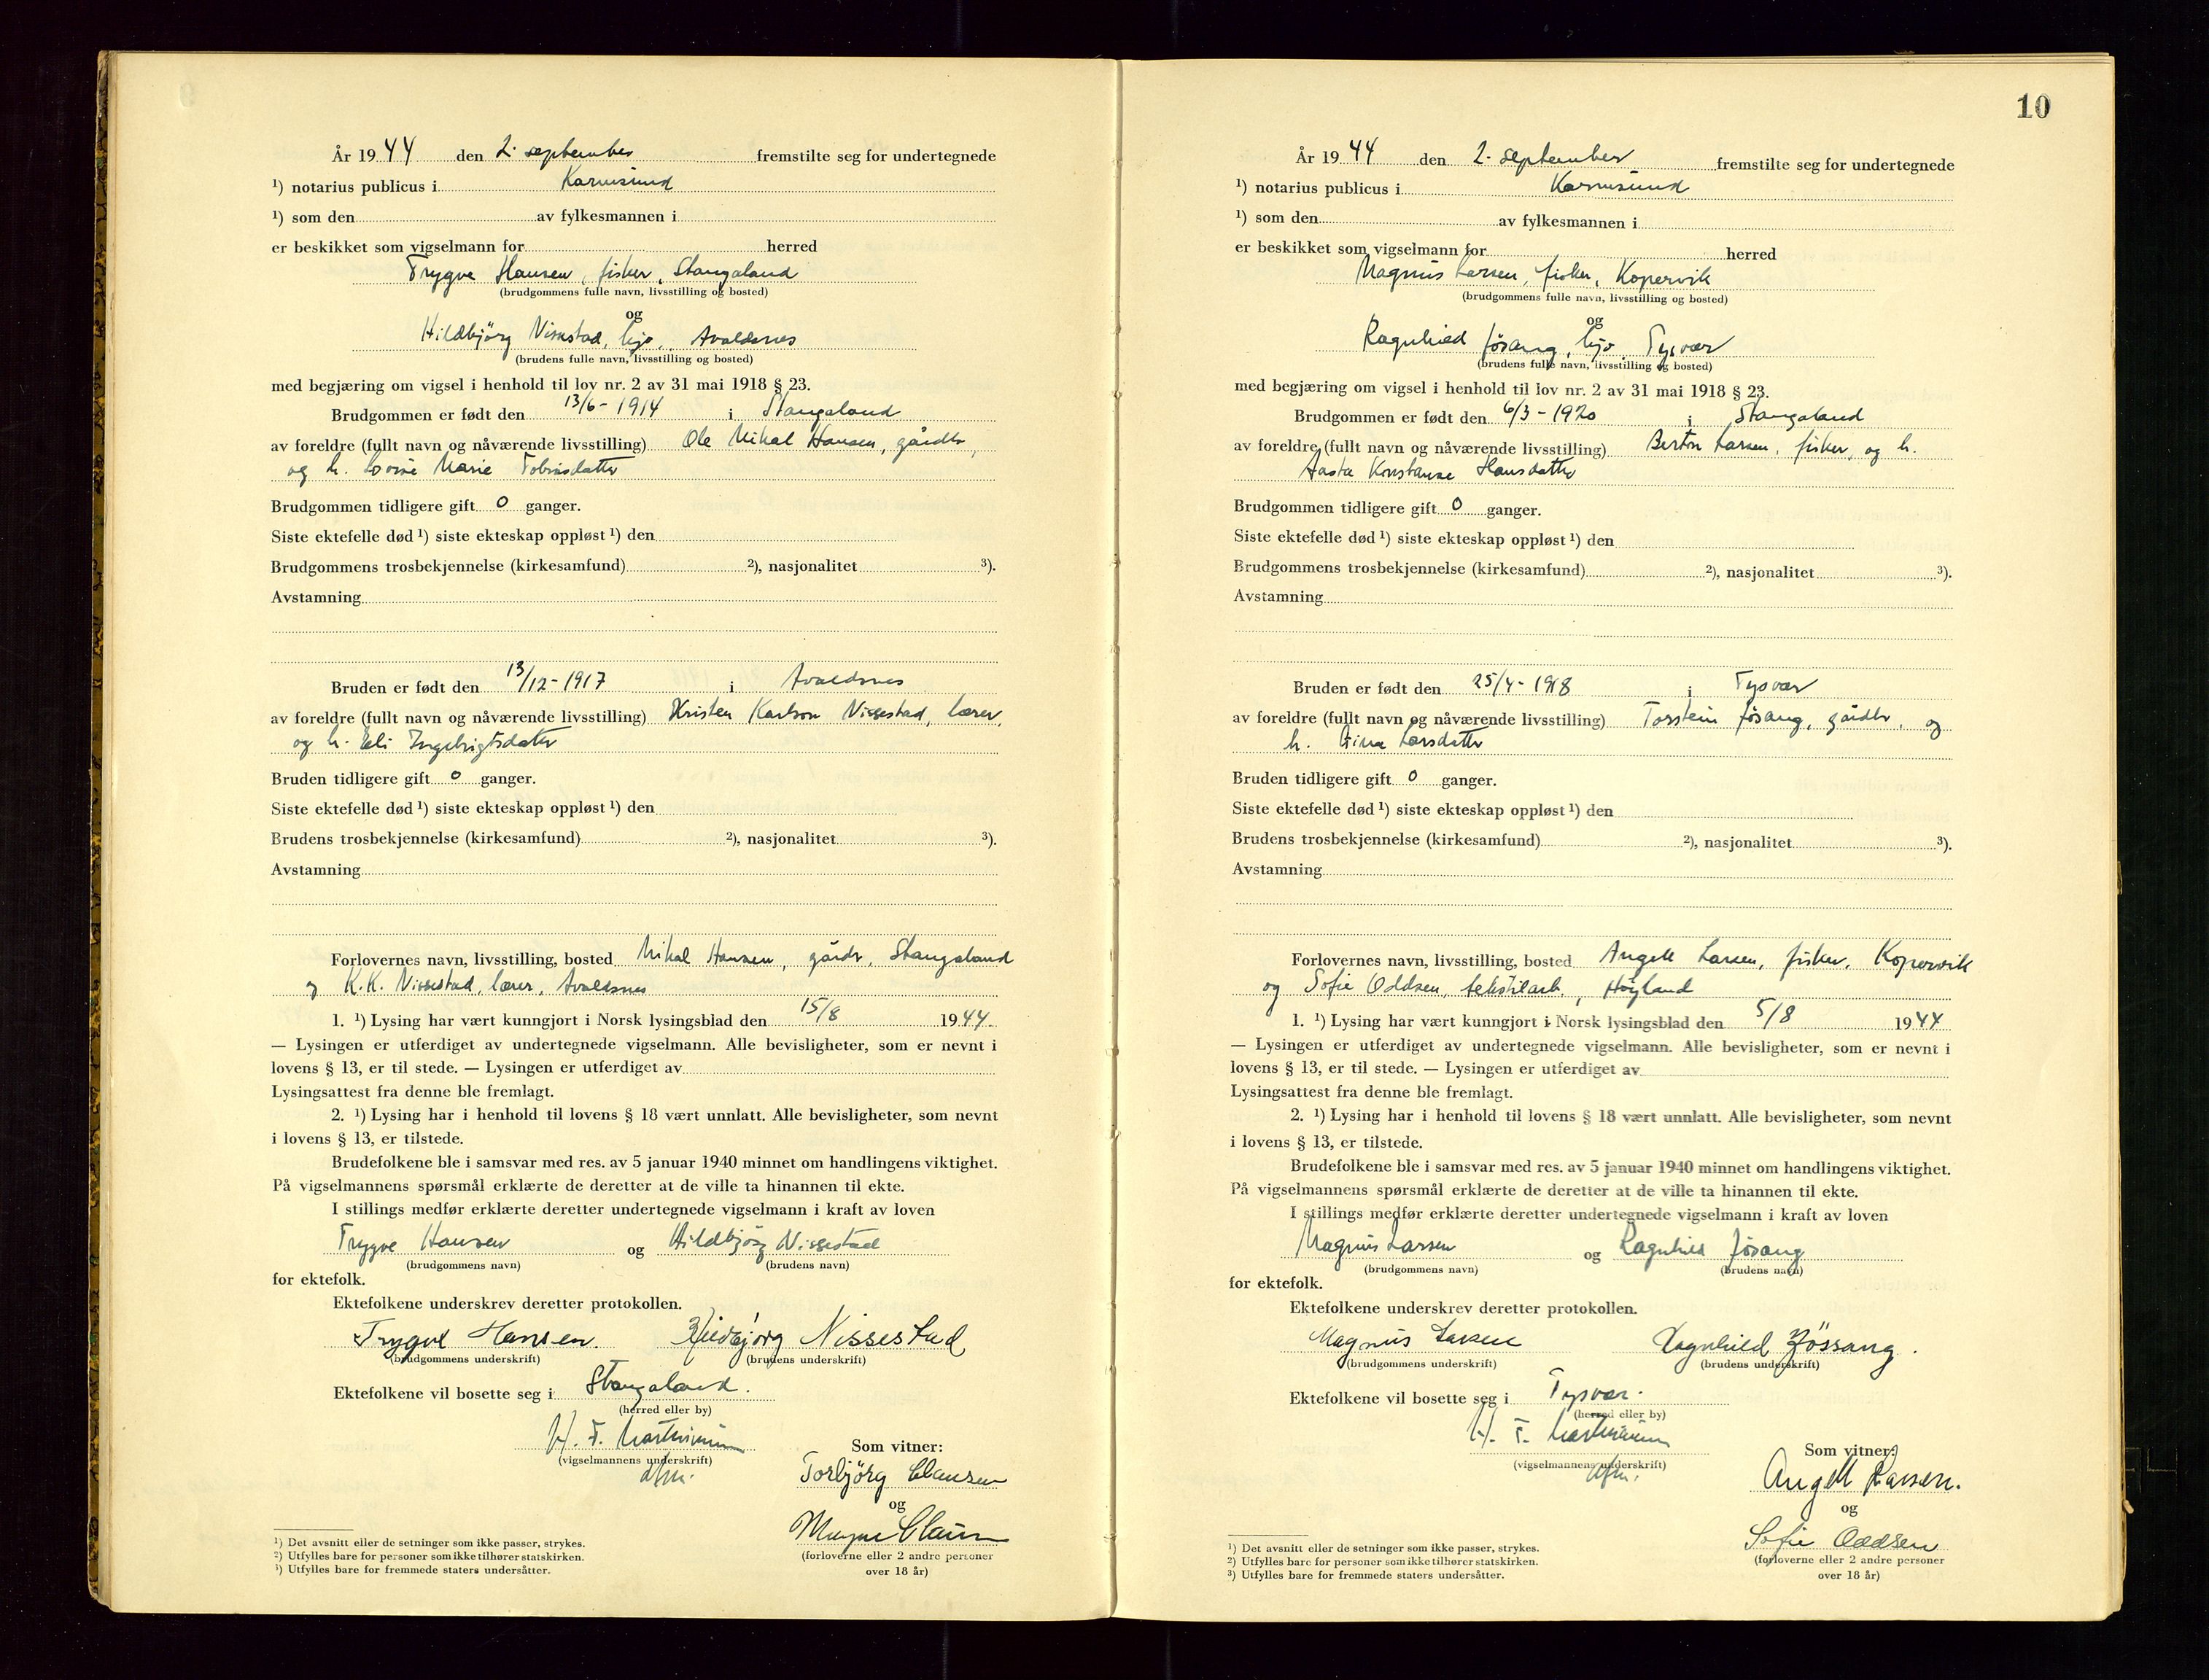 År 1944 den 2. september fremstilte seg for undertegnede
¹) notarius publicus i Karmsund
¹) som den av fylkesmannen i
er beskikket som vigselmann for herred
Trygve Hansen, fisker, Stangaland
(brudgommens fulle navn, livsstilling og bosted)
og
Hildbjörg Nissestad, hjv., Avaldsnes
(brudens fulle navn, livsstilling og bosted)
med begjæring om vigsel i henhold til lov nr. 2 av 31 mai 1918 § 23.
Brudgommen er født den 13/6 - 1914 i Stangaland
av foreldre (fullt navn og nåværende livsstilling) Ole Mikal Hansen, gårdbr.,
og h. Lovise Marie Tobiasdatter
Brudgommen tidligere gift 0 ganger.
Siste ektefelle død ¹) siste ekteskap oppløst ¹) den
Brudgommens trosbekjennelse (kirkesamfund) ²), nasjonalitet ³).
Avstamning
Bruden er født den 13/12 - 1917 i Avaldsnes
av foreldre (fullt navn og nåværende livsstilling) Kristen Karlson Nissestad, lærer,
og h. Eli Ingebrigtsdatter
Bruden tidligere gift 0 ganger.
Siste ektefelle død ¹) siste ekteskap oppløst ¹) den
Brudens trosbekjennelse (kirkesamfund) ²), nasjonalitet ³).
Avstamning
Forlovernes navn, livsstilling, bosted Mikal Hansen, gårdbr., Stangaland
og K.K. Nissestad, lærer, Avaldsnes
1. ¹) Lysing har vært kunngjort i Norsk lysingsblad den 15/8 1944.
— Lysingen er utferdiget av undertegnede vigselmann. Alle bevisligheter, som er nevnt i
lovens § 13, er til stede. — Lysingen er utferdiget av
Lysingsattest fra denne ble fremlagt.
2. ¹) Lysing har i henhold til lovens § 18 vært unnlatt. Alle bevisligheter, som nevnt
i lovens § 13, er tilstede.
Brudefolkene ble i samsvar med res. av 5 januar 1940 minnet om handlingens viktighet.
På vigselmannens spørsmål erklærte de deretter at de ville ta hinannen til ekte.
I stillings medfør erklærte deretter undertegnede vigselmann i kraft av loven
Trygve Hansen og Hildbjörg Nissestad
(brudgommens navn) (brudens navn)
for ektefolk.
Ektefolkene underskrev deretter protokollen.
Trygve Hansen. Hildbjørg Nissestad
(brudgommens underskrift) (brudens underskrift)
Ektefolkene vil bosette seg i Stangaland.
(herred eller by)
H. F. Martinium
(vigselmannens underskrift)
Som vitner:
Torbjörg Clausen
og
(forloverne eller 2 andre personer
over 18 år)
¹) Det avsnitt eller de setninger som ikke passer, strykes.
²) Utfylles bare for personer som ikke tilhører statskirken.
³) Utfylles bare for fremmede staters undersåtter.
10
År 1944 den 2. september fremstilte seg for undertegnede
¹) notarius publicus i Karmsund
¹) som den av fylkesmannen i
er beskikket som vigselmann for herred
Magnus Larsen, fisker, Kopervik
(brudgommens fulle navn, livsstilling og bosted)
og
Ragnhild Jösang, hjv. Tysvær
(brudens fulle navn, livsstilling og bosted)
med begjæring om vigsel i henhold til lov nr. 2 av 31 mai 1918 § 23.
Brudgommen er født den 6/3 - 1920 i Stangaland
av foreldre (fullt navn og nåværende livsstilling) Berton Larsen, fisker, og h.
Aasta Konstanse Hansdatter
Brudgommen tidligere gift 0 ganger.
Siste ektefelle død ¹) siste ekteskap oppløst ¹) den
Brudgommens trosbekjennelse (kirkesamfund) ²), nasjonalitet ³).
Avstamning
Bruden er født den 25/4 - 1918 i Tysvær
av foreldre (fullt navn og nåværende livsstilling) Torstein Jösang, gårdbr., og
h. Gina Larsdatter
Bruden tidligere gift 0 ganger.
Siste ektefelle død ¹) siste ekteskap oppløst ¹) den
Brudens trosbekjennelse (kirkesamfund) ²), nasjonalitet ³).
Avstamning
Forlovernes navn, livsstilling, bosted Angell Larsen, fisker, Kopervik
og Sofie Oddsen, tekstilarb., Høyland
1. ¹) Lysing har vært kunngjort i Norsk lysingsblad den 5/8 1944
— Lysingen er utferdiget av undertegnede vigselmann. Alle bevisligheter, som er nevnt i
lovens § 13, er til stede. — Lysingen er utferdiget av
Lysingsattest fra denne ble fremlagt.
2. ¹) Lysing har i henhold til lovens § 18 vært unnlatt. Alle bevisligheter, som nevnt
i lovens § 13, er tilstede.
Brudefolkene ble i samsvar med res. av 5 januar 1940 minnet om handlingens viktighet.
På vigselmannens spørsmål erklærte de deretter at de ville ta hinannen til ekte.
I stillings medfør erklærte deretter undertegnede vigselmann i kraft av loven
Magnus Larsen og Ragnhild Jösang
(brudgommens navn) (brudens navn)
for ektefolk.
Ektefolkene underskrev deretter protokollen.
Magnus Larsen Ragnhild Jössang.
(brudgommens underskrift) (brudens underskrift)
Ektefolkene vil bosette seg i Tysvær.
(herred eller by)
H. F. Martinium
(vigselmannens underskrift)
Som vitner:
Angell Larsen.
og
Sofie Oddsen
(forloverne eller 2 andre personer
over 18 år)
¹) Det avsnitt eller de setninger som ikke passer, strykes.
²) Utfylles bare for personer som ikke tilhører statskirken.
³) Utfylles bare for fremmede staters undersåtter.